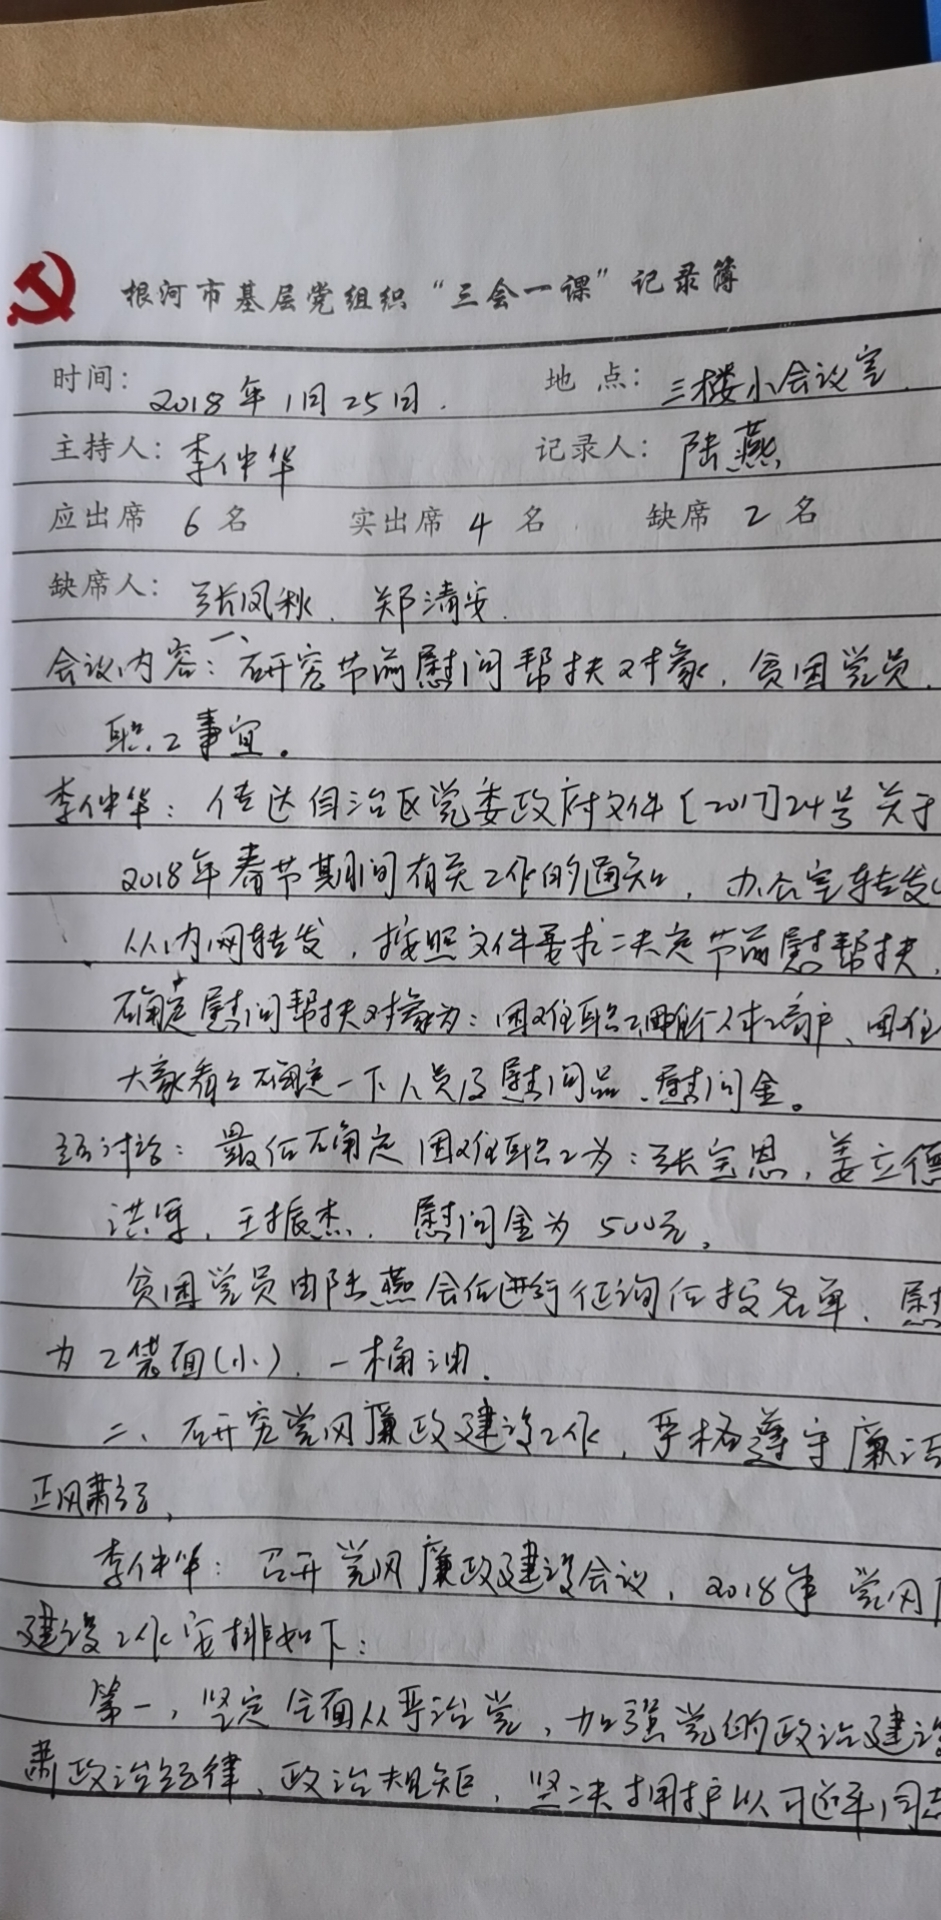 根河市基层党组织“三会一课”记录簿
时间：2018年1月25日. 地点：三楼小会议室.
主持人：李仲华 记录人：陆燕
应出席 6 名 实出席 4 名 缺席 2 名
缺席人：张凤秋、郑清安.
会议内容：一、研究节前慰问帮扶对象、贫困党员、
职工事宜。
李仲华：传达自治区党委政府文件[2017]24号关于
2018年春节期间有关工作的通知，办公室转发
从内网转发，按照文件要求决定节前慰帮扶，
确定慰问帮扶对象为：困难职工 、困难
大家看 确定一下人员及慰问品、慰问金。
经讨论：最后确定困难职工为：张宝恩，姜立德
洪军，王振杰. 慰问金为500元，
贫困党员由陆燕会后进行征询后报名单、慰
为2袋面(小)、一桶油.
二、研究党风廉政建设工作，严格遵守廉洁
正风肃纪，
李仲华：召开党风廉政建设会议，2018年党风
建设工作安排如下：
第一，坚定全面从严治党，加强党的政治建设
肃政治纪律、政治规矩，坚决拥护以习近平同志